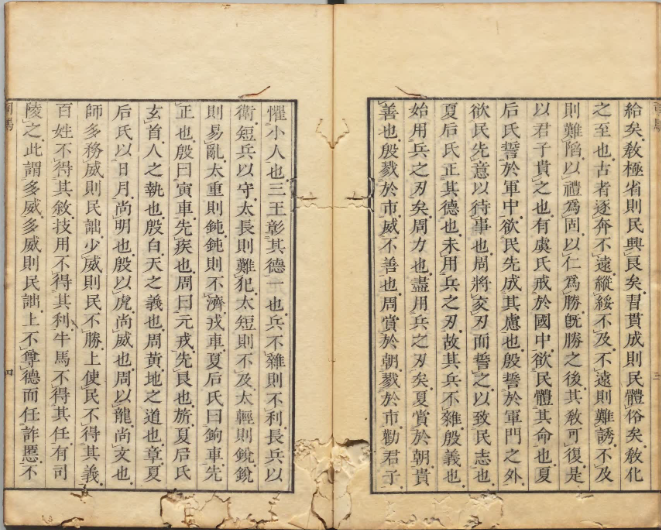 給矣敎極省則民興良矣習貫成則民體俗矣敎化
之至也古者逐奔不遠縱綏不及不遠則難誘不及
則難陷以禮爲固以仁爲勝旣勝之後其敎可復是
以君子貴之也有虞氏戒於國中欲民體其命也夏
后氏誓於軍中欲民先成其慮也殷誓於軍門之外
欲民先意以待事也周將交刃而誓之以致民志也
夏后氏正其德也未用兵之刃故其兵不雜殷義也
始用兵之刃矣周力也盡用兵之刃矣夏賞於朝貴
善也殷戮於市威不善也周賞於朝戮於市勸君子
懼小人也三王彰其德一也兵不雜則不利長兵以
衛短兵以守太長則難犯太短則不及太輕則銳銳
則易亂太重則鈍鈍則不濟戎車夏后氏曰鉤車先
正也殷曰寅車先疾也周曰元戎先良也旂夏后氏
玄首人之執也殷白天之義也周黃地之道也章夏
后氏以日月尚明也殷以虎尚威也周以龍尚文也
師多務威則民詘少威則民不勝上使民不得其義
百姓不得其敘技用不得其利牛馬不得其任有司
陵之此謂多威多威則民詘上不尊德而任詐慝不
四